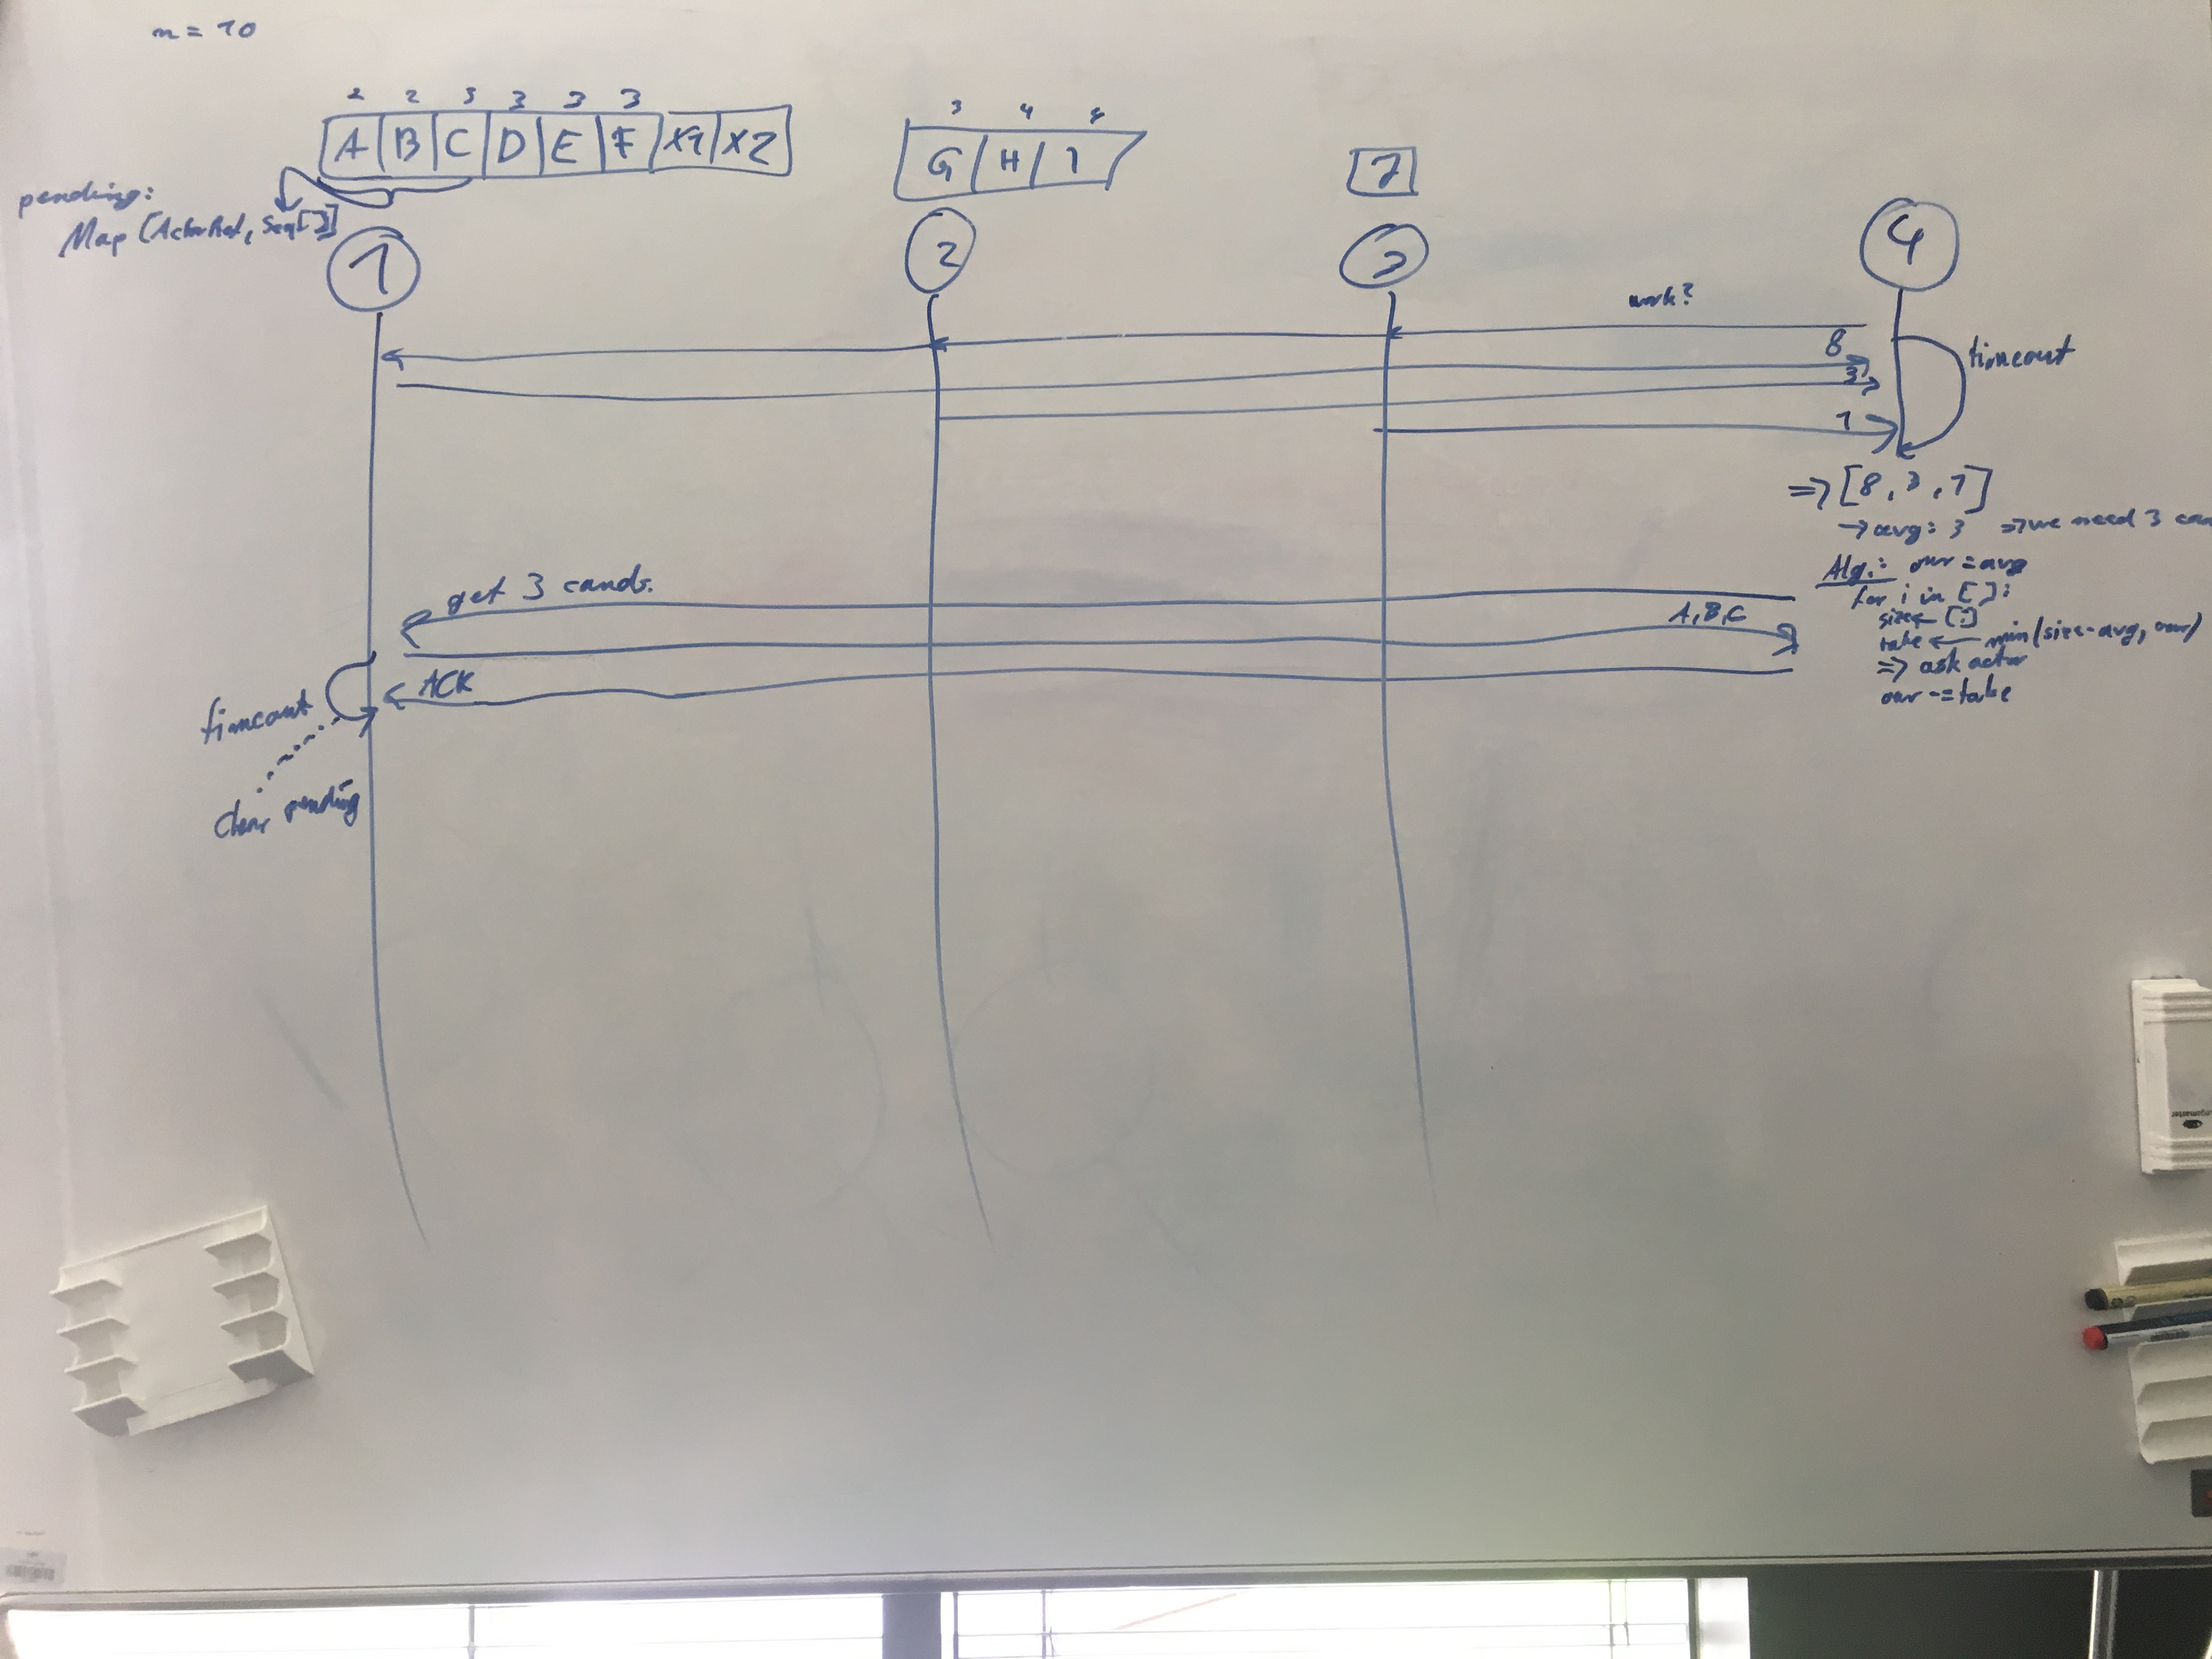 n = 10
2 2 3 3 3 3
A B C D E F X1 X2
3 4
G H I
J
pending:
Map [ActorRef, Seq[]]
1 2 3 4
work?
8
3
1
timeout
=> [8, 3, 1]
-> avg: 3 => we need 3
Alg.: our = avg
for i in []:
size <- [i]
take <- min(size-avg, our)
=> ask actor
our -= take
get 3 cands.
A, B, C
ACK
timeout
clear pending